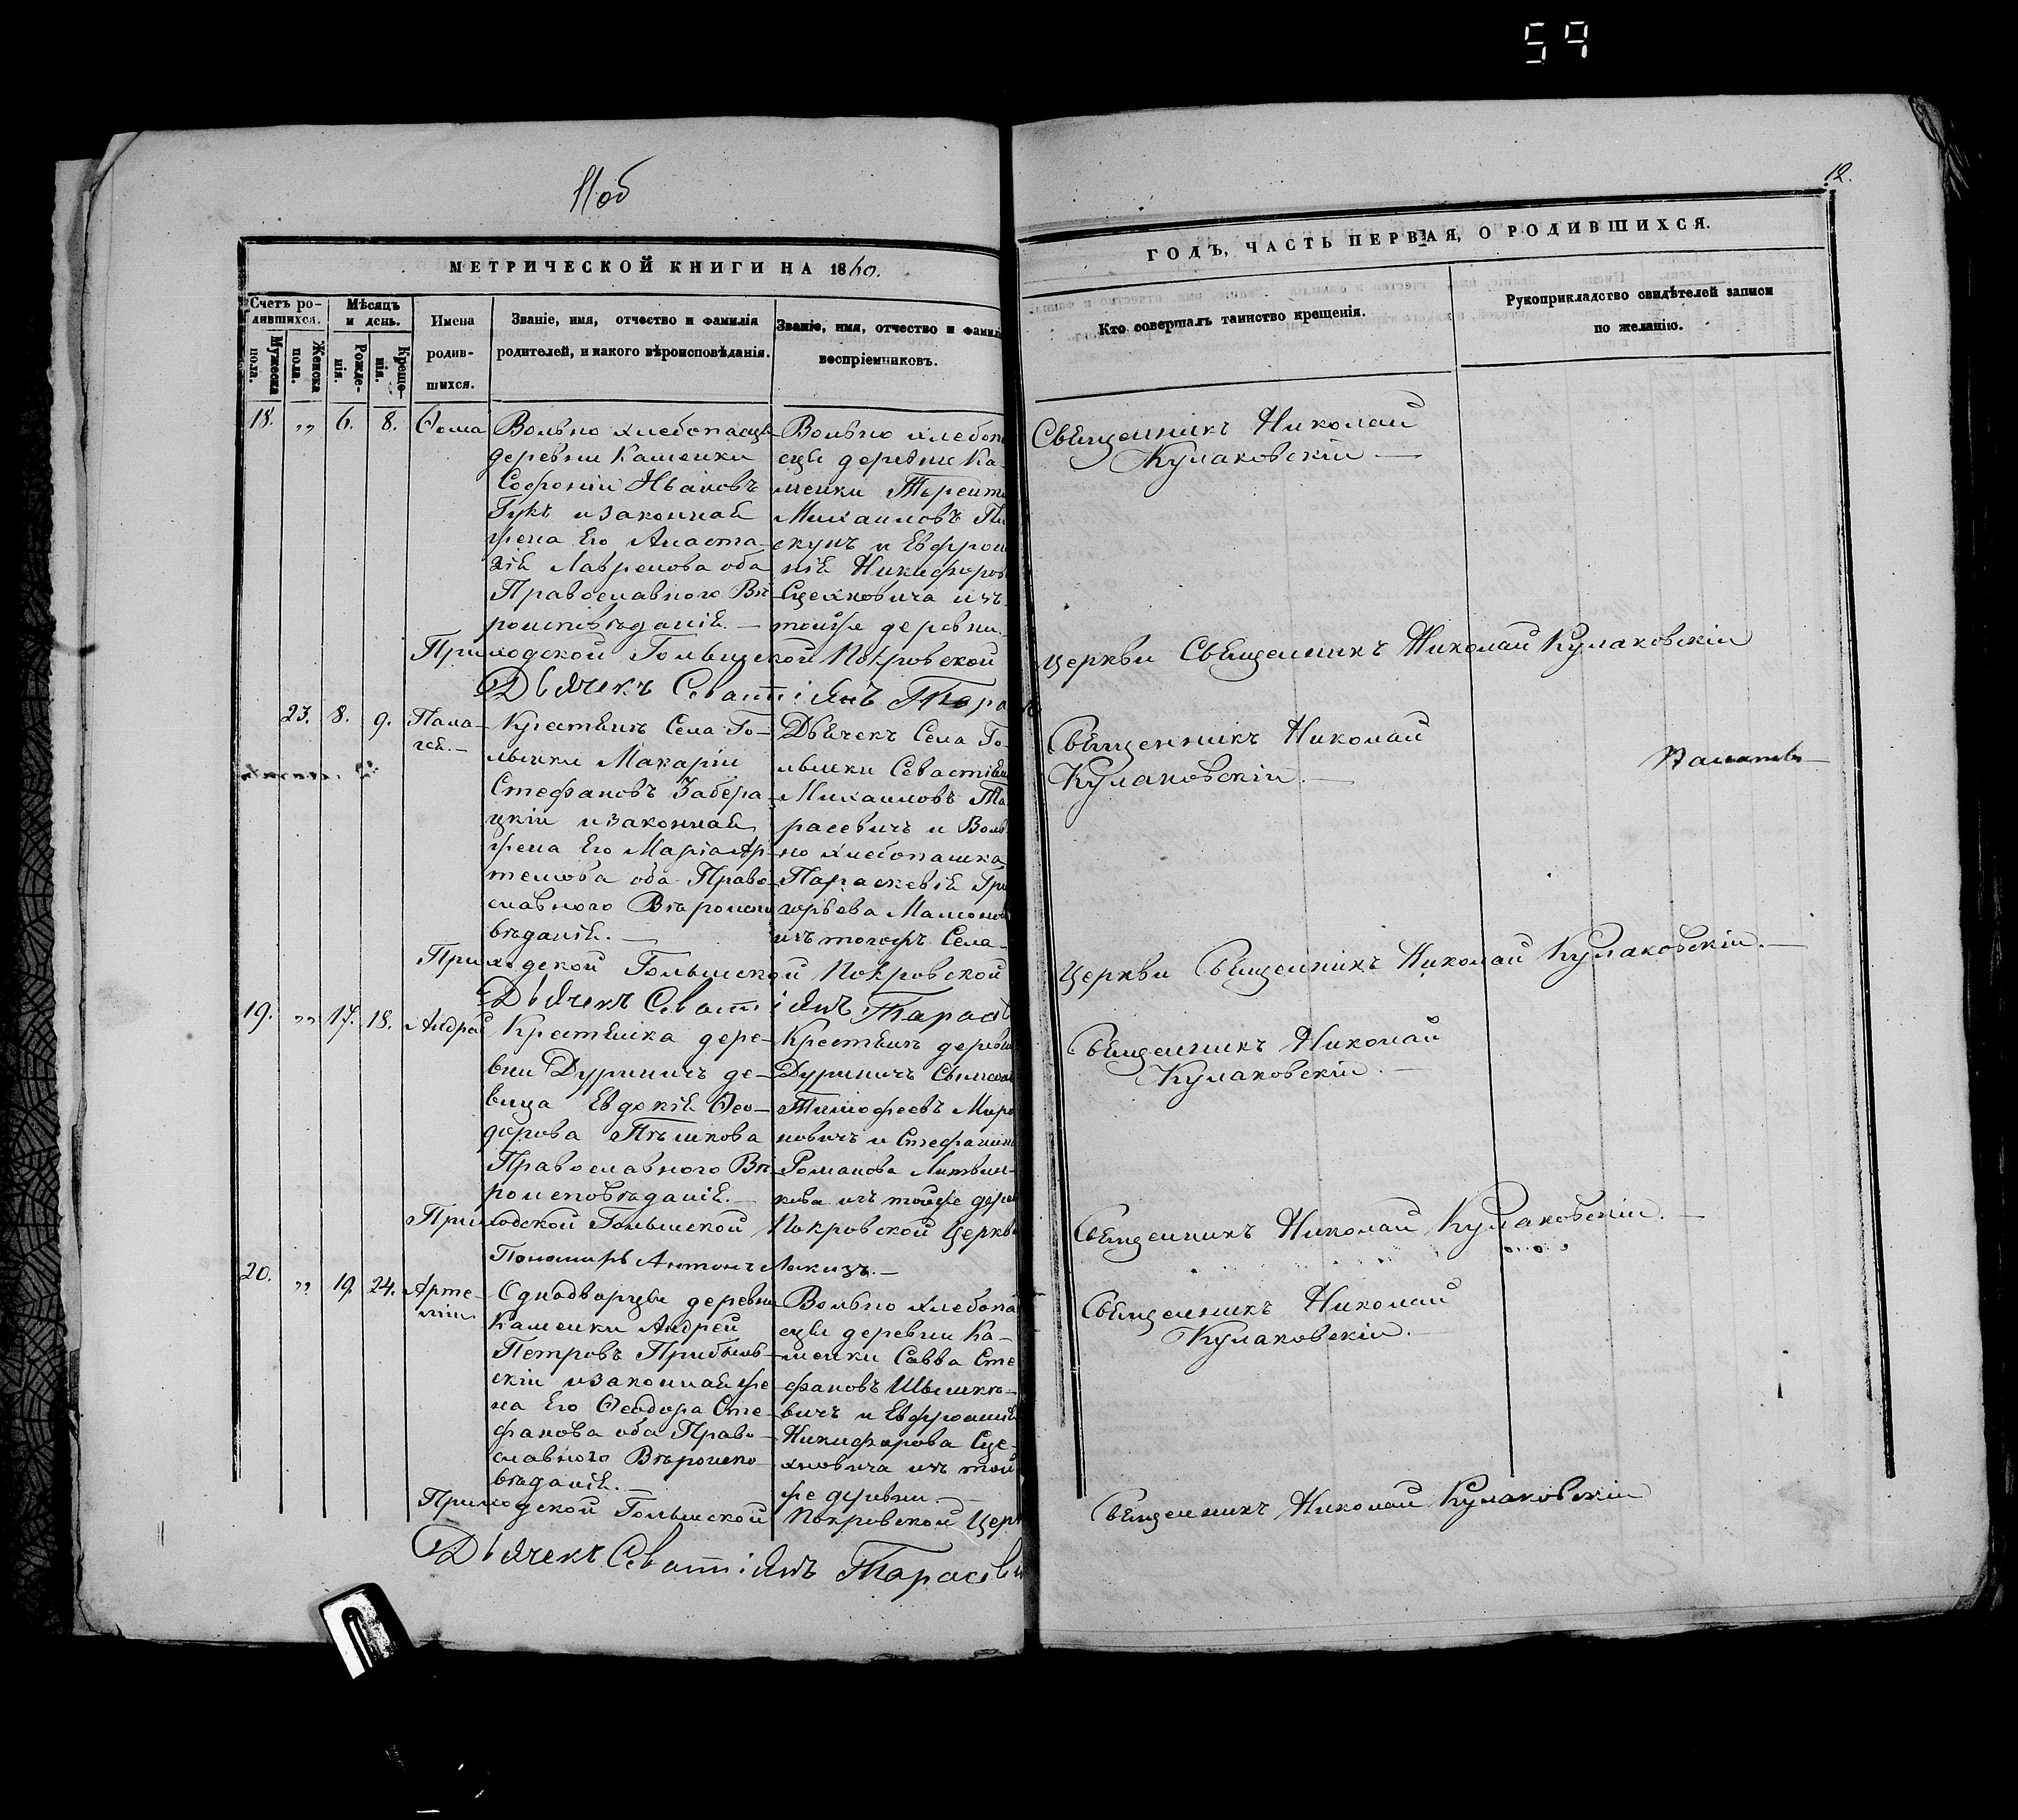 59
11об
12.
МЕТРИЧЕСКОЙ КНИГИ НА 1860.
Счетъ ро-
дившихся.
Мѣсяцъ
и день.
Мужеска
пола.
Женска
пола.
Рожде-
нія.
Креще-
нія.
Имена
родив-
шихся.
Званіе, имя, отчество и фамилія
родителей, и какого вѣроисповѣданія.
Званіе, имя, отчество и фамилі
воспріемниковъ.
ГОДЪ, ЧАСТЬ ПЕРВАЯ, О РОДИВШИХСЯ.
Кто совершалъ таинство крещенія.
Рукоприкладство свидѣтелей записи
по желанію.
18. „ 6. 8. Ѳома
Вольно хлебопасцы
деревни Каменки
Софроній Ивановъ
Гукъ и законная
жена Его Анаста-
зія Лавренова оба
Православного Вѣ-
роисповѣданія. —
Вольно хлебопа
сцы деревни Ка-
менки Терент
Михаиловъ Пи
скунъ и Евфрои
нія Никифоров
Сцехновича изъ
тойже деревни.
Священникъ Николай
Кулаковскій —
Приходской Голышской Покровской
церкви Священникъ Николай Кулаковскій
Дьячекъ Севастіянъ Тара
23. 8. 9. Пала-
гея. —
Крестьянъ Села Го-
лышки Макарій
Стефановъ Забера-
цкій и законная
жена Его Марія Ар-
темова оба Право-
славного Вѣроиспо
вѣданія. —
Дьячекъ Села Го-
лышки Севастіян
Михаиловъ Та-
расевичъ и Воль
но хлебопашка
Параскевія Гри
горьева Мамонов
изъ тогожъ Села-
Священникъ Николай
Кулаковскій. —
Приходской Голышской Покровской
Церкви Священникъ Николай Кулаковскій. —
Дьячекъ Севастіянъ Тарасев
19. „ 17. 18. Андрей
Крестьянка дере-
вни Дуриничъ де-
вица Евдокія Ѳео-
дорова Пѣшкова
Православного Вѣ-
роисповѣданія. —
Крестьянъ деревни
Дуриничъ
Тимофеевъ Миро
новичъ и Стефанин
Романова Литвин-
кова изъ тойже дерев
Священникъ Николай
Кулаковскій. —
Приходской Голышской Покровской Церкв
Священникъ Николай Кулаковскій. —
Пономаръ Антонъ
20. „ 19. 24. Арте-
мій
Однодворцы деревни
Каменки Андрей
Петровъ Прибыль-
скій и законная же
на Его Ѳеодора Сте-
фанова оба Право-
славного Вѣроиспо-
вѣданія. —
Вольно хлебопа
сцы деревни Ка-
менки Савва Сте
фановъ Шышке-
вичъ и Евфросинія
Никифорова Сце-
хновича изъ той
же деревни. —
Священникъ Николай
Кулаковскій. —
Приходской Голышской Покровской Церк
Священникъ Николай Кулаковскій
Дьячекъ Севастіянъ Тарасеви